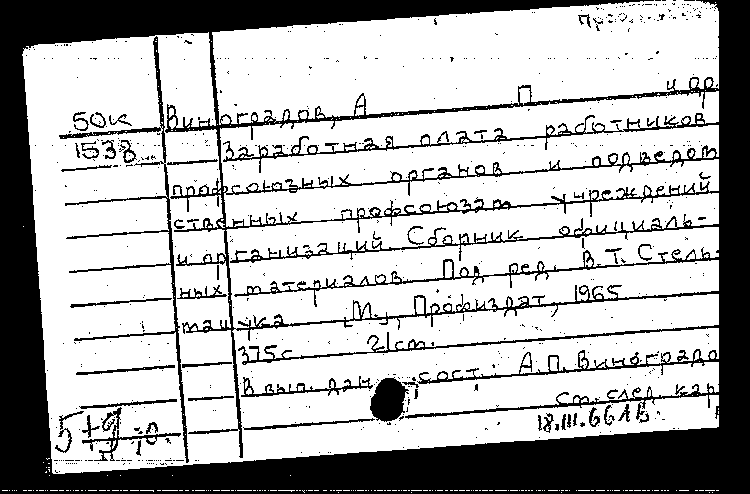 50к Виноградов, А П и др.
1538 Заработная плата работников
профсоюзных органов и подведом
ственных профсоюзам учреждений
и организаций. Сборник официаль-
ных материалов. Под ред. В.Т. Стель-
машука [М.], Профиздат, 1965
375с. 21см.
В вып. дан. сост.: А.П. Виноградо
См. след. кар
18.III.66 ЛВ.